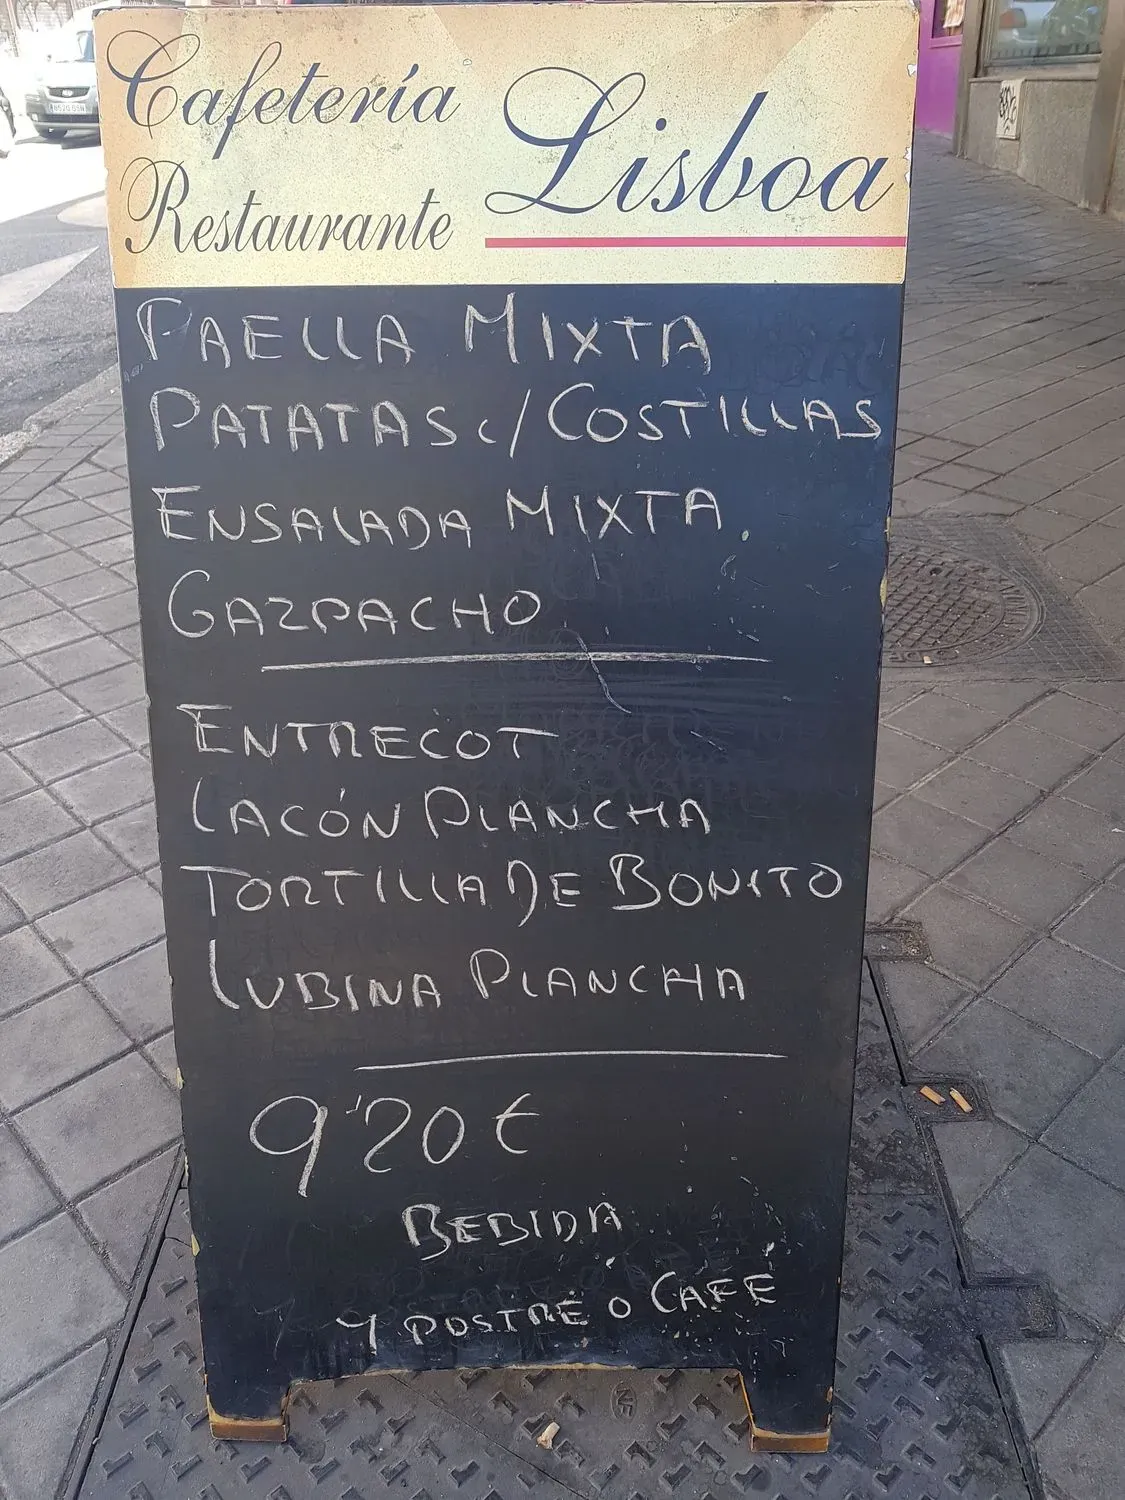 Cafetería
Restaurante
Lisboa
PAELLA MIXTA
PATATAS c/ COSTILLAS
ENSALADA MIXTA
GAZPACHO
ENTRECOT
LACÓN PLANCHA
TORTILLA DE BONITO
LUBINA PLANCHA
9'20 €
BEBIDA
Y POSTRE O CAFÉ